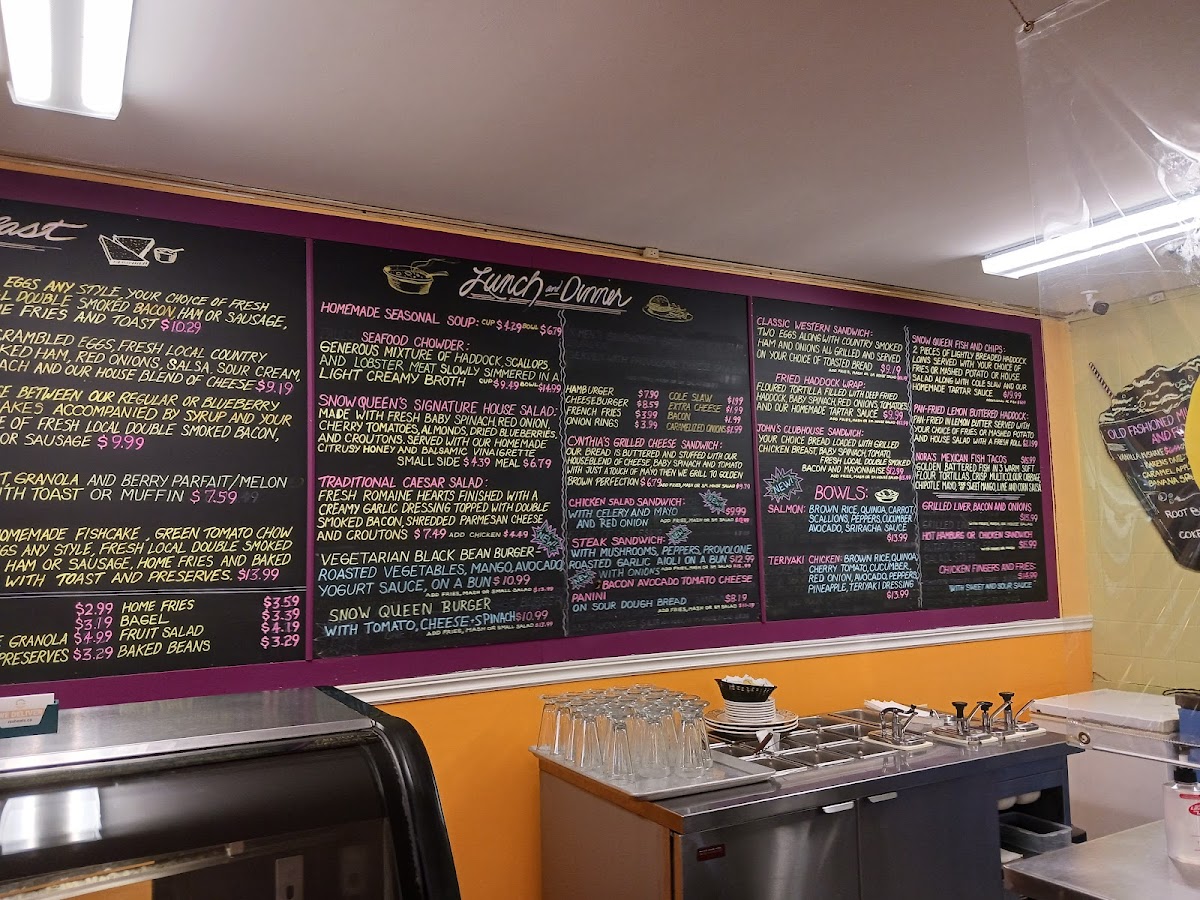 east
EGGS ANY STYLE YOUR CHOICE OF FRESH
DOUBLE SMOKED BACON, HAM OR SAUSAGE,
FRIES AND TOAST $10.29
SCRAMBLED EGGS, FRESH LOCAL COUNTRY
HAM, RED ONIONS, SALSA, SOUR CREAM,
AND OUR HOUSE BLEND OF CHEESE $9.19
BETWEEN OUR REGULAR OR BLUEBERRY
ACCOMPANIED BY SYRUP AND YOUR
OF FRESH LOCAL DOUBLE SMOKED BACON,
OR SAUSAGE $9.99
GRANOLA AND BERRY PARFAIT/MELON
WITH TOAST OR MUFFIN $7.59
HOMEMADE FISHCAKE, GREEN TOMATO CHOW
ANY STYLE, FRESH LOCAL DOUBLE SMOKED
HAM OR SAUSAGE, HOME FRIES AND BAKED
WITH TOAST AND PRESERVES. $13.99
$2.99 HOME FRIES $3.59
$3.19 BAGEL $3.39
GRANOLA $4.99 FRUIT SALAD $4.19
PRESERVES $3.29 BAKED BEANS $3.29
Lunch and Dinner
HOMEMADE SEASONAL SOUP: CUP $4.29 BOWL $6.79
SEAFOOD CHOWDER:
GENEROUS MIXTURE OF HADDOCK, SCALLOPS
AND LOBSTER MEAT SLOWLY SIMMERED IN A
LIGHT CREAMY BROTH CUP $9.49 BOWL $14.99
SNOW QUEEN'S SIGNATURE HOUSE SALAD:
MADE WITH FRESH BABY SPINACH, RED ONION,
CHERRY TOMATOES, ALMONDS, DRIED BLUEBERRIES,
AND CROUTONS. SERVED WITH OUR HOMEMADE
CITRUSY HONEY AND BALSAMIC VINAIGRETTE
SMALL SIDE $4.39 MEAL $6.79
TRADITIONAL CAESAR SALAD:
FRESH ROMAINE HEARTS FINISHED WITH A
CREAMY GARLIC DRESSING TOPPED WITH DOUBLE
SMOKED BACON, SHREDDED PARMESAN CHEESE
AND CROUTONS $7.49 ADD CHICKEN $4.49
VEGETARIAN BLACK BEAN BURGER-
ROASTED VEGETABLES, MANGO, AVOCADO,
YOGURT SAUCE, ON A BUN $10.99
ADD FRIES, MASH OR SMALL SALAD $13.99
SNOW QUEEN BURGER
WITH TOMATO, CHEESE + SPINACH $10.99
ADD FRIES, MASH OR SMALL SALAD $13.99
HAMBURGER $7.99
CHEESEBURGER $8.59
FRENCH FRIES $3.99
ONION RINGS $3.99
COLE SLAW
EXTRA CHEESE
BACON
CARAMELIZED ONIONS
CYNTHIA'S GRILLED CHEESE SANDWICH:
OUR BREAD IS BUTTERED AND STUFFED WITH OUR
HOUSE BLEND OF CHEESE, BABY SPINACH AND TOMATO
WITH JUST A TOUCH OF MAYO THEN WE GRILL TO GOLDEN
BROWN PERFECTION $6.79
CHICKEN SALAD SANDWICH:
WITH CELERY AND MAYO $9.99
AND RED ONION
STEAK SANDWICH:
WITH MUSHROOMS, PEPPERS, PROVOLONE
ROASTED GARLIC AIOLI ON A BUN $12.99
WITH ONIONS
BACON AVOCADO TOMATO CHEESE
PANINI
ON SOUR DOUGH BREAD $8.19
CLASSIC WESTERN SANDWICH:
TWO EGGS ALONG WITH COUNTRY SMOKED
HAM AND ONIONS ALL GRILLED AND SERVED
ON YOUR CHOICE OF TOASTED BREAD $9.19
FRIED HADDOCK WRAP:
FLOURED TORTILLA FILLED WITH DEEP FRIED
HADDOCK, BABY SPINACH, RED ONIONS, TOMATOES
AND OUR HOMEMADE TARTAR SAUCE $9.99
JOHN'S CLUBHOUSE SANDWICH:
YOUR CHOICE BREAD LOADED WITH GRILLED
CHICKEN BREAST, BABY SPINACH, TOMATO,
FRESH LOCAL DOUBLE SMOKED
BACON AND MAYONNAISE $12.99
NEW!
BOWLS:
SALMON: BROWN RICE, QUINOA, CARROT,
SCALLIONS, PEPPERS, CUCUMBER,
AVOCADO, SRIRACHA SAUCE
$13.99
TERIYAKI CHICKEN: BROWN RICE, QUINOA,
CHERRY TOMATO, CUCUMBER,
RED ONION, AVOCADO, PEPPERS,
PINEAPPLE, TERIYAKI DRESSING
$13.99
SNOW QUEEN FISH AND CHIPS:
2 PIECES OF LIGHTLY BREADED HADDOCK
LOINS SERVED WITH YOUR CHOICE OF
FRIES OR MASHED POTATO OR HOUSE
SALAD ALONG WITH COLE SLAW AND OUR
HOMEMADE TARTAR SAUCE
PAN-FRIED LEMON BUTTERED HADDOCK:
PAN FRIED IN LEMON BUTTER SERVED WITH
YOUR CHOICE OF FRIES OR MASHED POTATO
AND HOUSE SALAD WITH A FRESH ROLL
NORA'S MEXICAN FISH TACOS
GOLDEN BATTERED FISH IN 3 WARM SOFT
FLOUR TORTILLAS, CRISP MULTICOLOUR CABBAGE,
CHIPOTLE MAYO, SWEET MANGO, LIME AND CORN SALSA
GRILLED LIVER, BACON AND ONIONS
HOT HAMBURG OR CHICKEN SANDWICH
CHICKEN FINGERS AND FRIES:
WITH SWEET AND SOUR SAUCE
OLD FASHIONED
ROOT
COKE